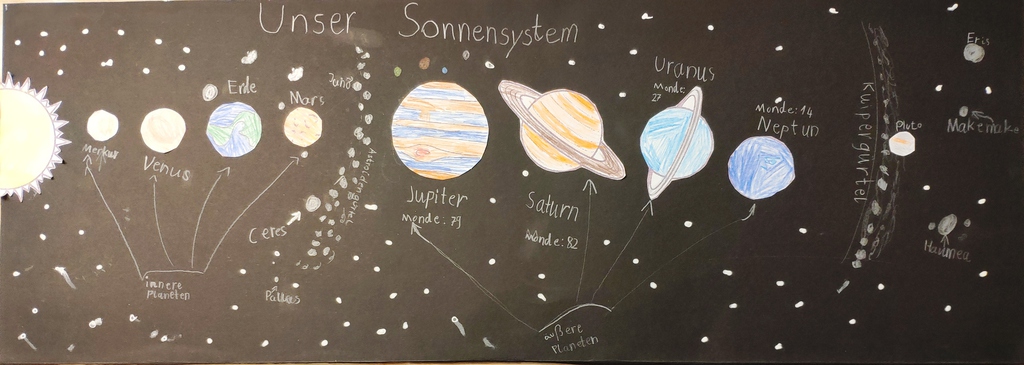 Unser Sonnensystem
Merkur
Venus
Erde
Mars
innere
Planeten
Ceres
Pallas
Asteroidengürtel
Jupiter
Monde: 79
Saturn
Monde: 82
Uranus
Monde:
27
Monde: 14
Neptun
äußere
Planeten
Kuipergürtel
Pluto
Eris
Makemake
Haumea